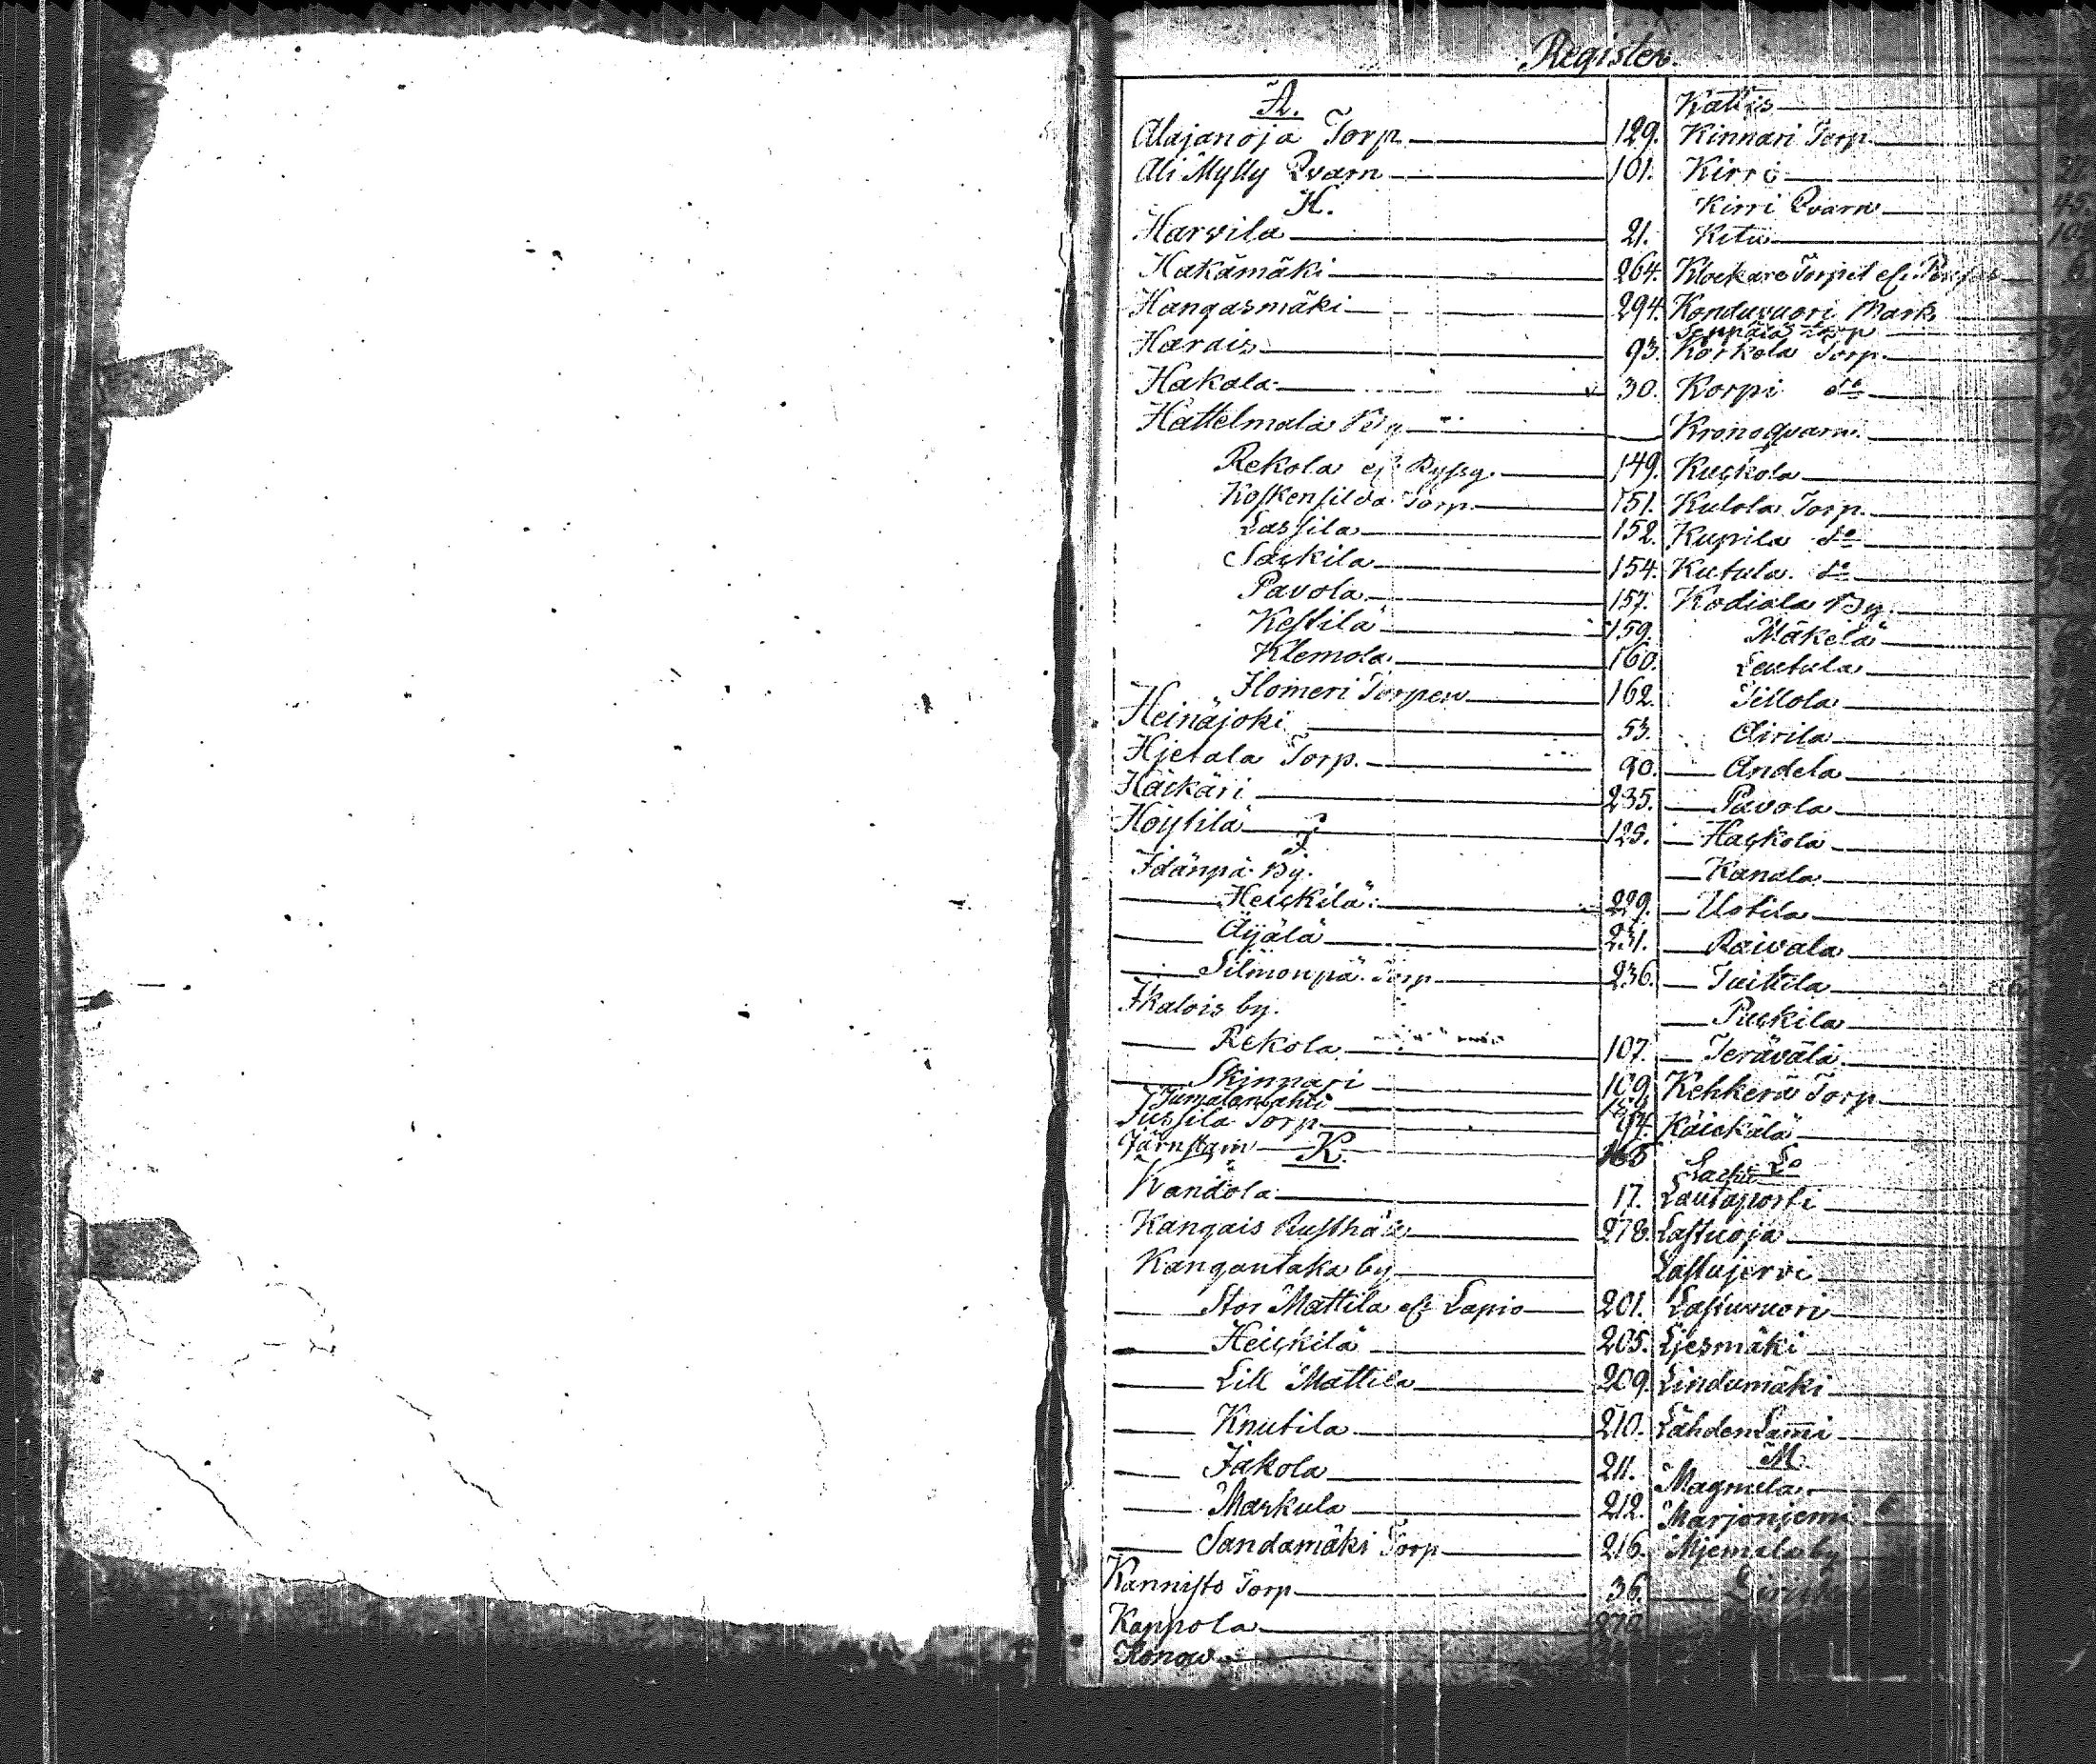 Register.
A.
Alajanoja Torp 129.
Ali Mylly Qvarn 101.
H.
Harvila 21.
Hakämäki 264.
Hangasmäki 294.
Harais 93.
Hakala 30.
Hattelmala By
Rekola 149.
Koskensilda Torp 151.
Lassila 152.
Sackila 154.
Pavola 157.
Kestilä 159.
Klemola 160.
Homeri Torpen 162.
Heinäjoki 53.
Hjetala Torp. 90.
Häckäri 235.
Höytilä 125.
I
Idänpä By.
Heickilä 229.
Äijälä 231.
Silmonpä Torp 236.
Ikalois by.
Rekola 107.
Skinnari 109
Jumalanlahti
Jussila Torp
Järnstam 165
K.
Kandola 17.
Kangais Rusthåll 278.
Kangantaka by
Stor Mattila el. Lapio 201.
Heickilä 205.
Lill Mattila 209.
Knutila 210.
Jakola 211.
Markula 212.
Sandamäki Torp 216.
Kannisto Torp 36.
Kappola 272
Konow
Kattis
Kinnari Torp.
Kirri
Kirri Qvarn 45.
Kitu
Klockare Torpet el.
Konduvuori Mark
Seppälä Torp
Korkola Torp.
Korpi do
Kronoqvarn.
Kuckola
Kulola Torp.
Kupila do
Kutula do
Kodiala By.
Mäkelä
Lautula
Tillola
Airila
Andela
Pavola
Hackola
Kanala
Uotila
Raivala
Tuittila
Puckila
Terävälä
Kehkerä Torp
Käickälä
L
Lautaporti
Lastuoja
Lastujervi
Lastuvuori
Ljesmäki
Lindumäki
Lähden Lammi
M
Magnula
Marjonjemi
Mjemala by